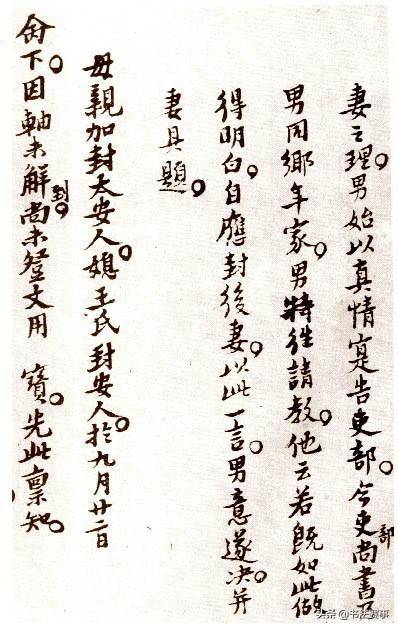 妻之理。男始以真情寔告吏部。今吏部尚書乃
男同鄉年家。男特往請教。他云若既如此做
得明白。自應封後妻。以此一言。男意遂决。并
妻具題。
母親加封太安人。媳王氏封安人。於九月廿二日
命下。因軸未解到。尚未登文用 寶。先此禀知。
头条@书法赛事